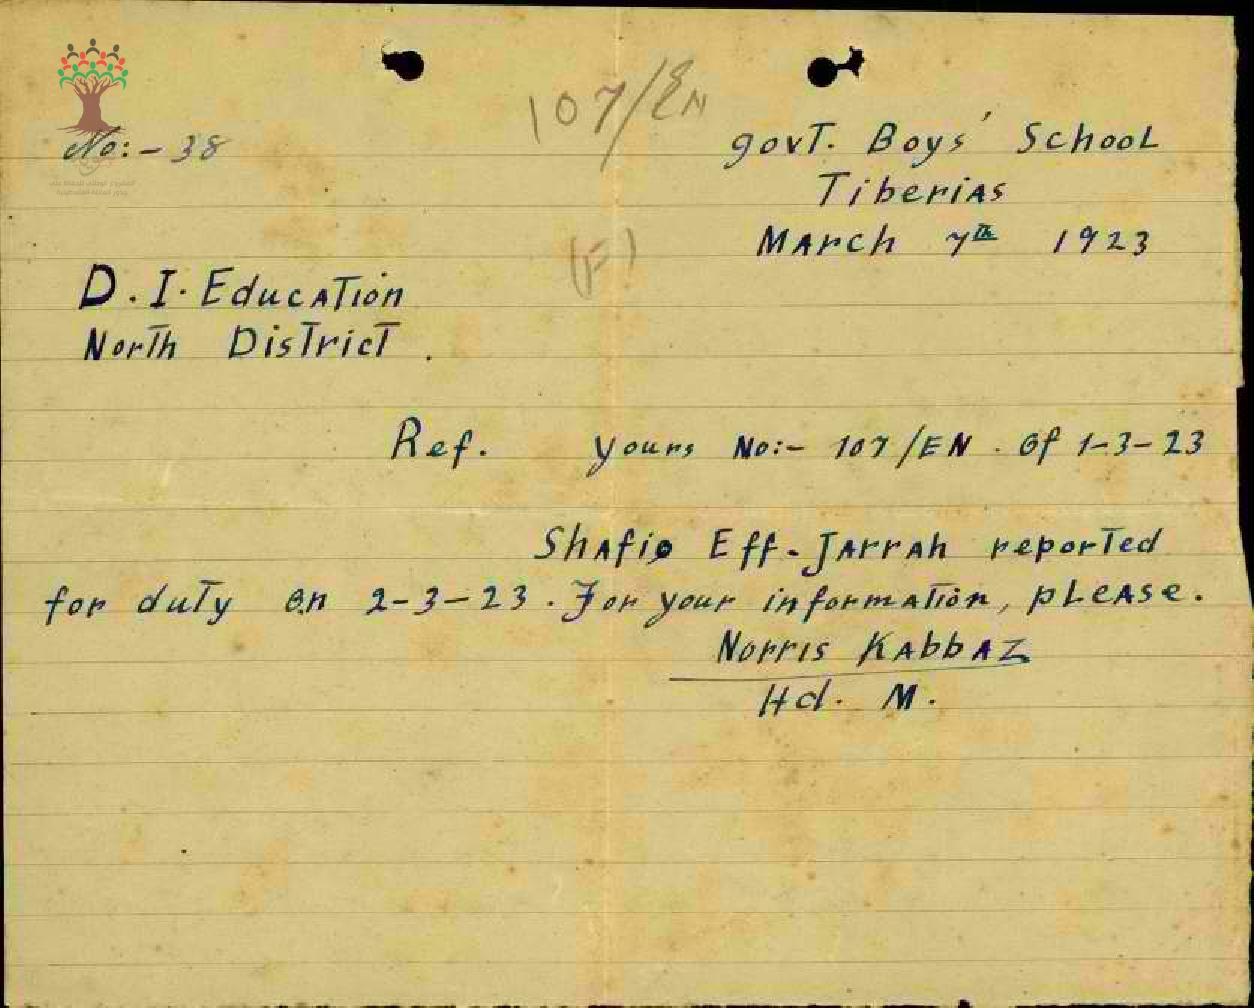 107/EN
No:- 38
Govt. Boys' School
Tiberias
March 7th 1923
(F)
D. I. Education
North District.
Ref. yours No:- 107/EN. of 1-3-23
Shafiq Eff. Jarrah reported
for duty on 2-3-23. For your information, please.
Norris Kabbaz
Hd. M.